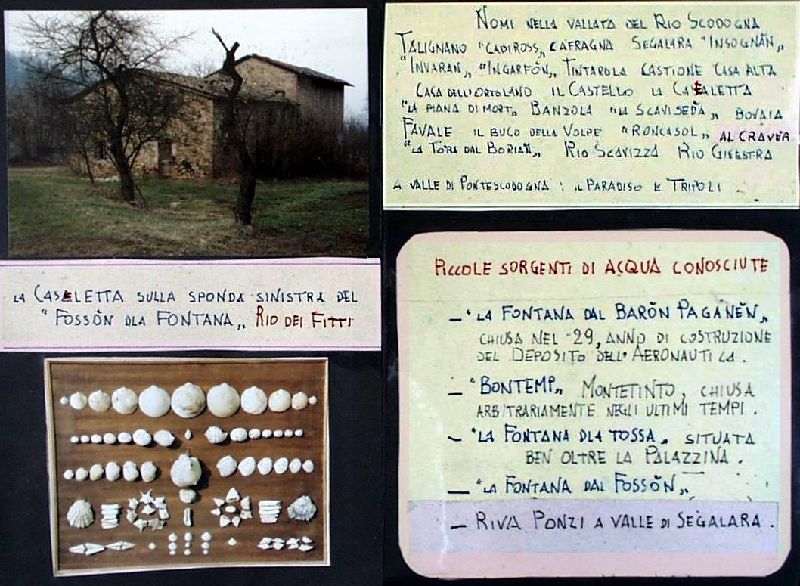 LA CASALETTA SULLA SPONDA SINISTRA DEL
"FOSSÖN DLA FONTANA„ RIO DEI FITTI
NOMI NELLA VALLATA DEL RIO SCODOGNA
TALIGNANO "CADIROSS„ CAFRAGNA SEGALARA "INSOGNÄN„
"INVARAN„ "INGARFÖN„ TINTAROLA CASTIONE CASA ALTA
CASA DELL'ORTOLANO IL CASTELLO LA CASALETTA
"LA PIANA DI MORT„ BANZOLA "LA SCAVISEDA„ BOVAIA
FAVALE IL BUCO DELLA VOLPE "RONCASOL„ AL CRAVER
"LA TORA DAL BORIAN„ RIO SCAVIZZA RIO GINESTRA
A VALLE DI PONTESCODOGNA: IL PARADISO E TRIPOLI
PICCOLE SORGENTI DI ACQUA CONOSCIUTE
— "LA FONTANA DAL BARÖN PAGANËN„
CHIUSA NEL -29, ANNO DI COSTRUZIONE
DEL DEPOSITO DELL'AERONAUTICA.
— "BONTEMP„ MONTETINTO, CHIUSA
ARBITRARIAMENTE NEGLI ULTIMI TEMPI.
— "LA FONTANA DLA TOSSA„ SITUATA
BEN OLTRE LA PALAZZINA.
— "LA FONTANA DAL FOSSÖN„
— RIVA PONZI A VALLE DI SEGALARA.